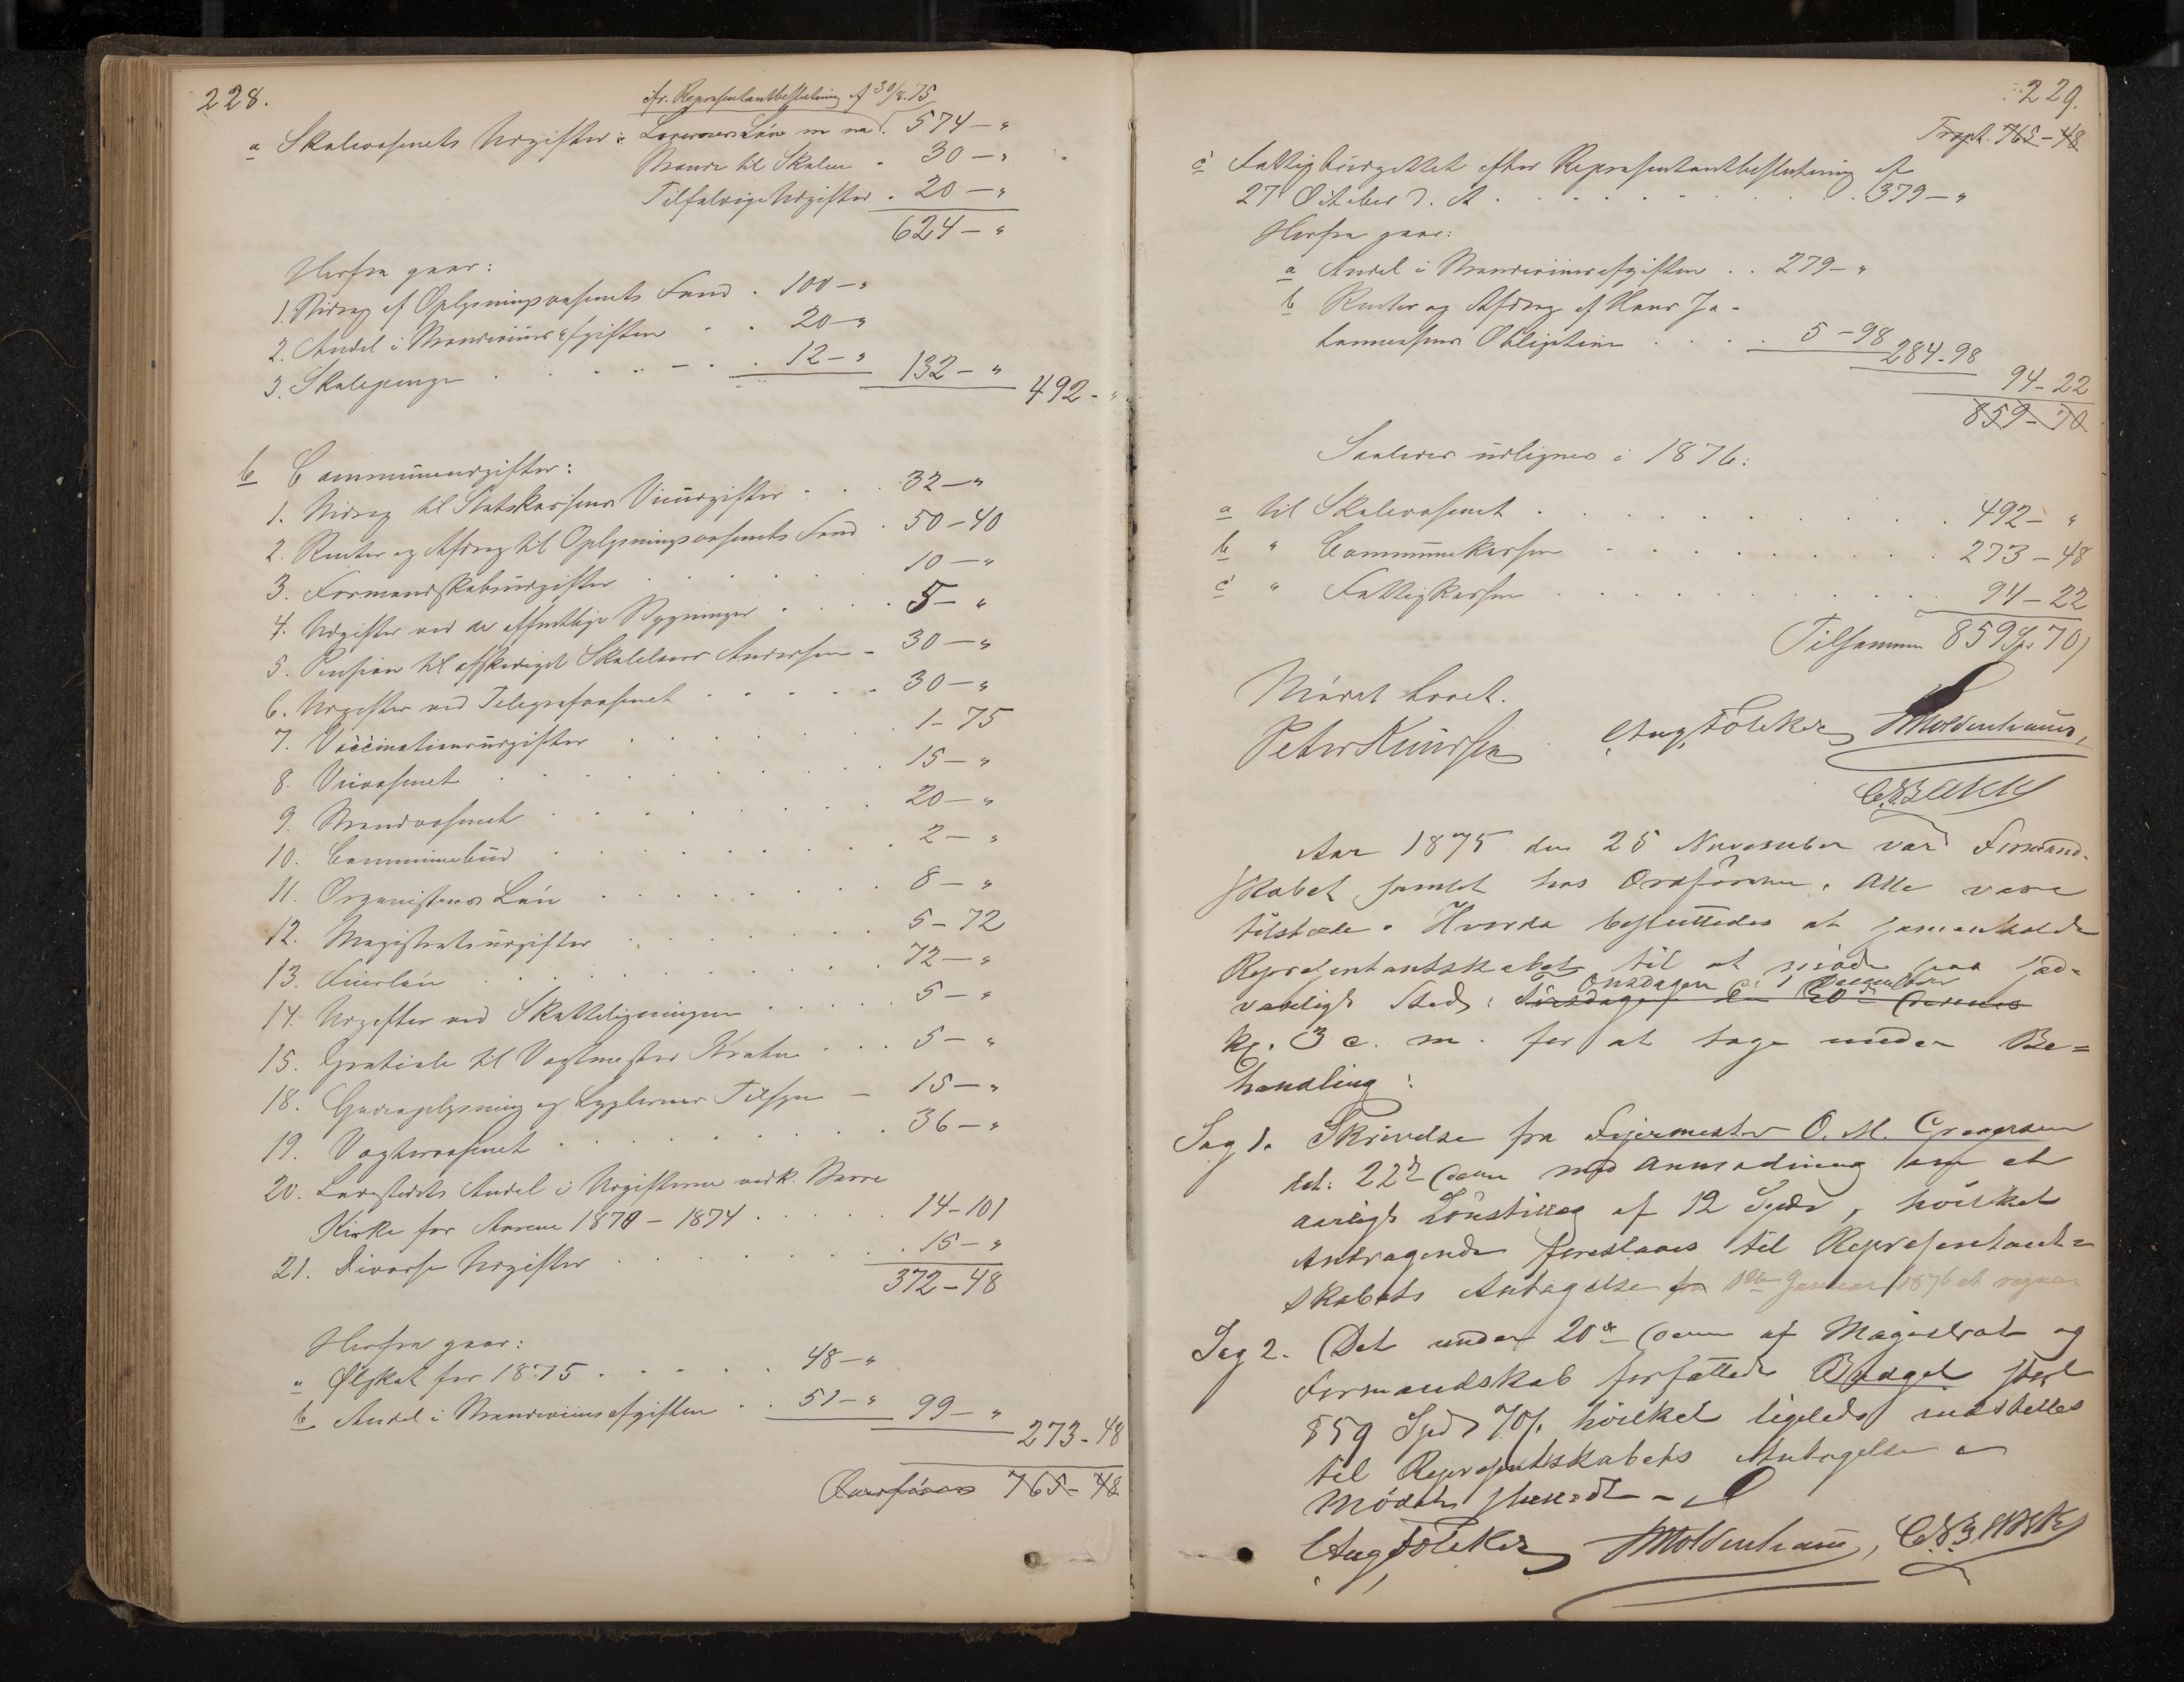 228.
cfr. Repræsentantbeslutning af 30/8.75
a Skolevæsenets Udgifter: Lærernes Løn m m. 574 – "
Brænde til Skolen . 30 – "
Tilfældige Udgifter . 20 – "
624 – "
Herfra gaar:
1. Bidrag af Oplysningsvæsenets Fond . 100 – "
2. Andel i Brændeviinsafgiften . . 20 – "
3. Skolepenge . . . . . 12 – " 132 – "
492 – "
b Communeudgifter:
1. Bidrag til Statskassens Udgifter . . . 32 – "
2. Renter og Afdrag til Oplysningsvæsenets Fond . 50 – 40
3. Formandskabsudgifter . . . . . 10 – "
4. Udgifter ved de offentlige Bygninger . . . . 5 – "
5. Pension til afskediget Skolelærer Andersen – 30 – "
6. Udgifter ved Telegrafvæsenet . . . . . 30 – "
7. Vaccinationsudgifter . . . . . . 1 – 75
8. Veivæsenet . . . . . . . 15 – "
9. Brandvæsenet . . . . . . . 20 – "
10. Communebud . . . . . . . 2 – "
11. Organistens Løn . . . . . . 8 – "
12. Magistratsudgifter . . . . . . 5 – 72
13. Huusleie . . . . . . . 72 – "
14. Udgifter ved Skatteligningen . . . . . 5 – "
15. Gratiale til Vagtmester . . . 5 – "
18. Gadeoplysning og Lygternes Tilsyn – 15 – "
19. Vægtervæsenet . . . . . . . 36 – "
20. Ladestedets Andel i Udgifterne vedk. Borre
Kirke for Aarene 1870 – 1874 . . . . . 14 – 101
21. Diverse Udgifter . . . . . . . 15 – "
372 – 48
Herfra gaar:
a Ølskat for 1875 . . . . . 48 – "
b Andel i Brændeviinsafgiften . . 51 – " 99 – "
273 – 48
Overføres 765 – 48
229.
Trspt. 765 – 48
c Fattigbudgettet efter Repræsentantbeslutning af
27 October d. A. . . . . . . . 379 – "
Herfra gaar:
a Andel i Brændeviinsafgiften . . 279 – "
b Renter og Afdrag af Hans Jo-
hannesens Obligation . . . . 5 – 98 284 – 98
94 – 22
859 – 70
Saaledes udlignes i 1876:
a til Skolevæsenet . . . . . . . . . 492 – "
b " Communekassen . . . . . . . 273 – 48
c " Fattigkassen . . . . . . . . 94 – 22
Tilsammen 859 Spd. 70 /
Mødet hævet.
Peter Knudsen Aug. Fölcker Moldenhauer,
Aar 1875 den 25 November var Formand-
skabet samlet hos Ordføreren. Alle vare
tilstæde. Hvorda besluttedes at sammenkalde
Repræsentantskabet til at møde paa sæd-
Onsdagen d: 1 December
vanligt Sted: Tirsdagen den 30 dennes
kl. 3 e. m. for at tage under Be=
handling:
Sag 1. Skrivelse fra Feiermester O. M. Gregersen
dat: 22de dennes med Anmodning om et
aarligt Lönstillæg af 12 Spdr, hvilket
Andragende foreslaaes til Repræsentant=
skabets Antagelse fra 1ste Januar 1876 at regne
Sag 2. Det under 20de dennes af Magistrat og
Formandskab forfattede Budget stort
859 Spd 70 /. hvilket ligeledes indstilles
til Repræsentskabets Antagelse
Mødet sluttedt –
Aug. Fölcker Moldenhauer,